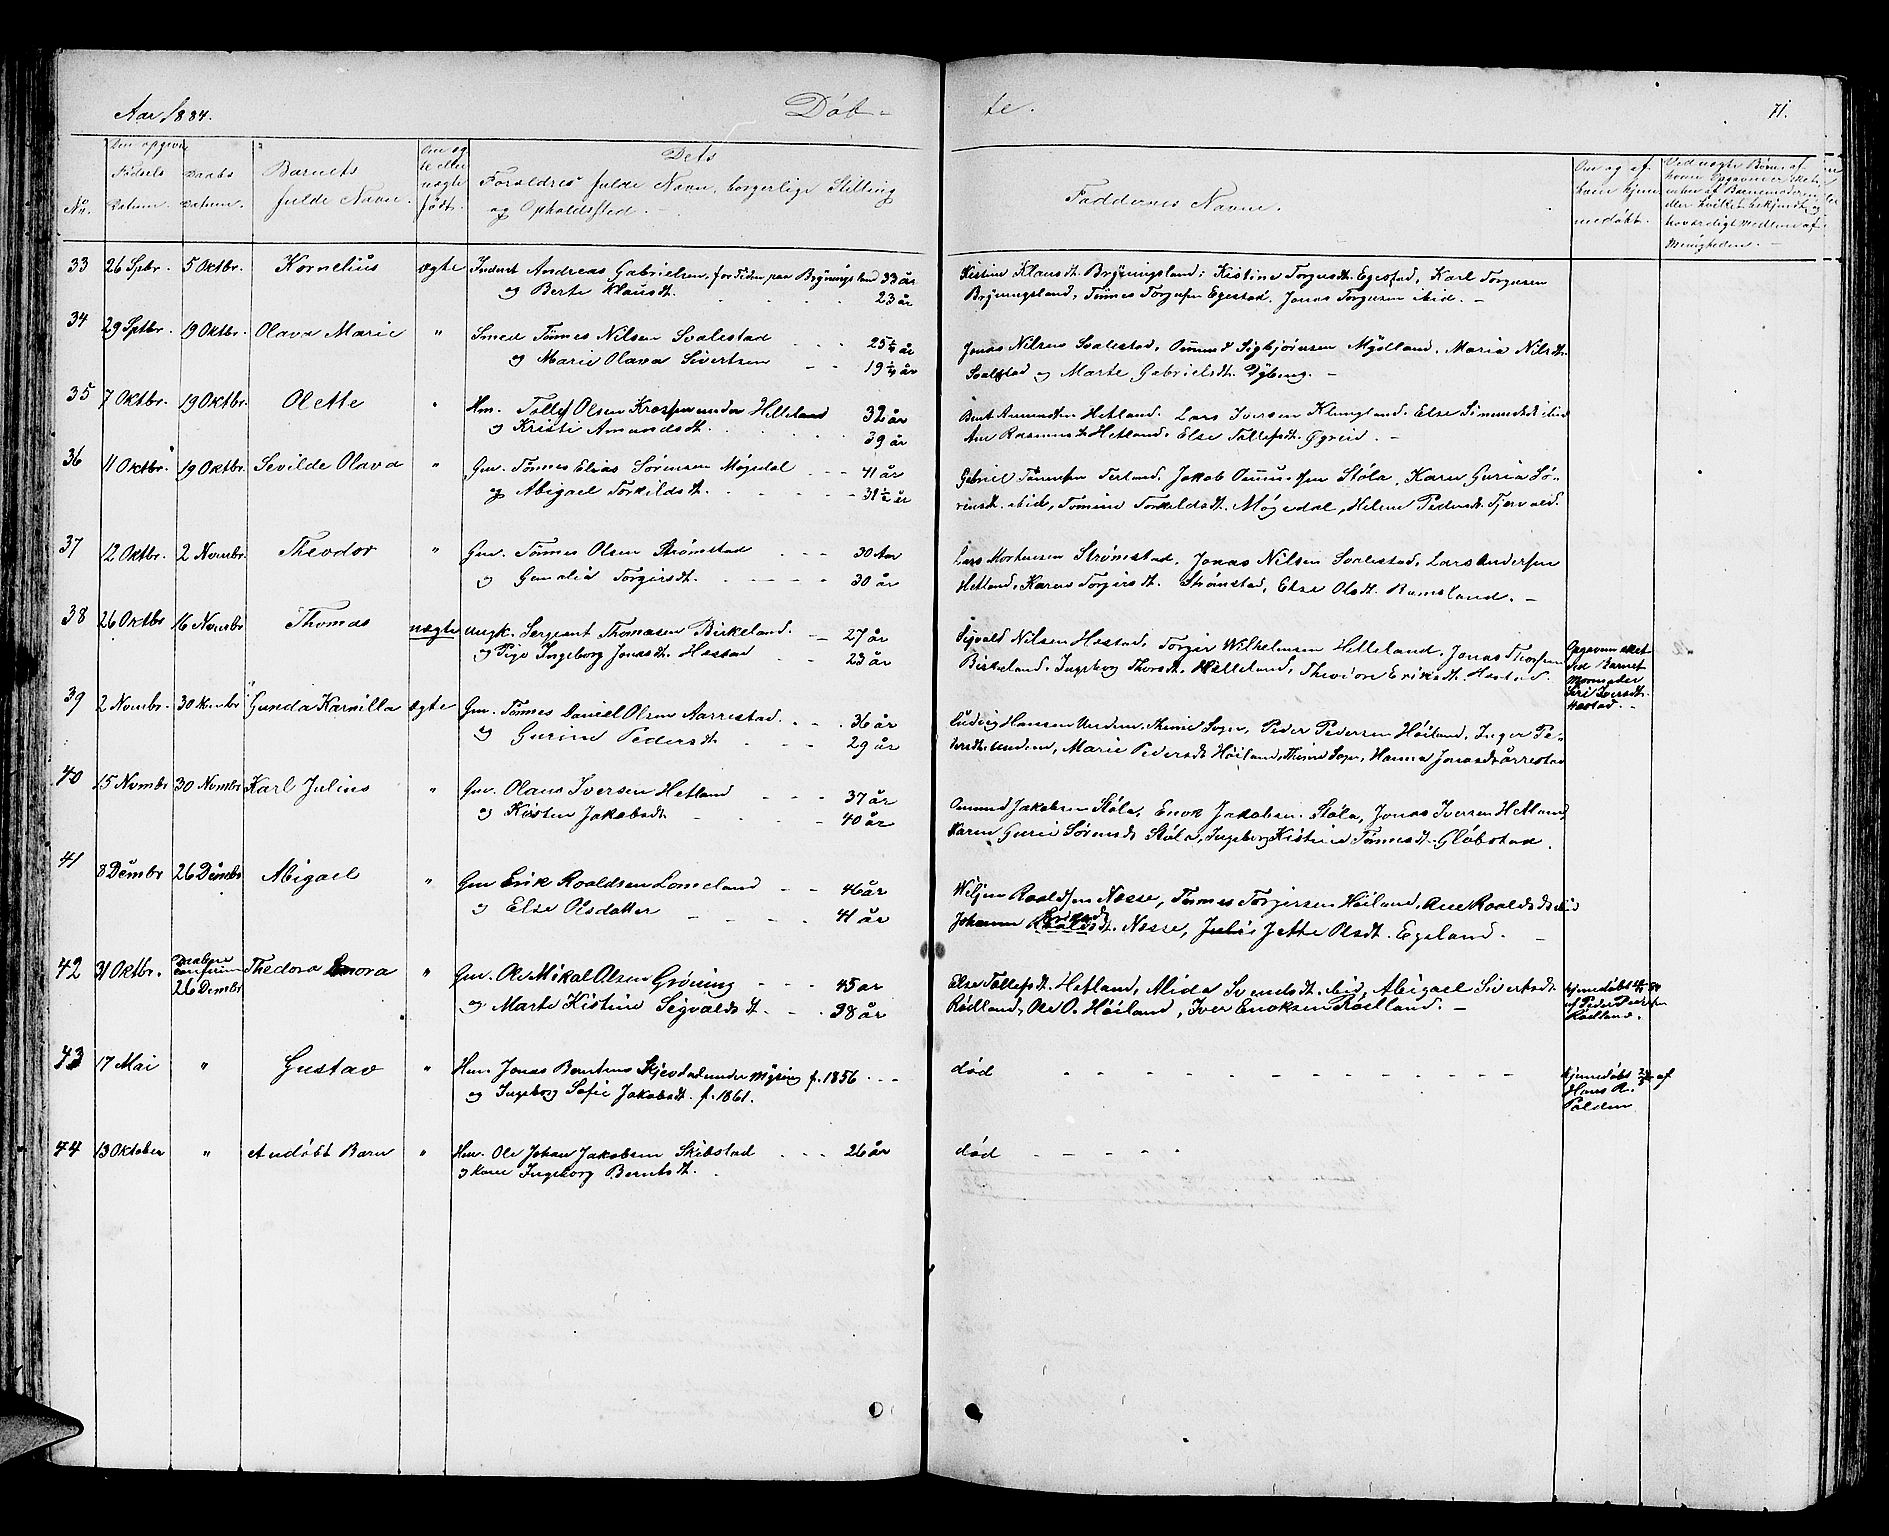 Aar 1884.
Døb-
te.
71.
No.
Fødsels Datum.
Daabs Datum.
Barnets fulde Navn.
Om ægte eller uægte født.
Dets
Forældres fulde Navn, borgerlige Stilling
og Opholdssted.
Faddernes Navne.
Om og af hvem hjemmedøbt.
33 26 Spbr. 5 Oktbr. Kornelius ægte Inderst Andreas Gabrielsen, for Tiden paa Bryningsland 33 år
og Berte Klausdt. 23 år
Kistine Klausdt. Bryningsland, Kistine Torgersdt. Egestad, Karl Torgersen
Bryningsland, Tönnes Torgersen Egestad, Jonas Torgersen ibid.
34 29 Sptbr. 19 Oktbr. Olava Marie " Smed Tönnes Nilsen Svalestad 25 år
og Marie Olava Sivertsen 19 år
Jonas Nilsen Svalestad, Ommund Sigbjørnsen Mydland, Maria Nilsdt.
Svalestad og Marte Gabrielsdt. Dybing.
35 7 Oktbr. 19 Oktbr. Olette " Hm. Tollef Olsen Krossen under Helleland 32 år
og Kristi Amundsdt. 39 år
Bent Amundsen Hetland, Lars Iversen Klungland, Else Simundsdt ibid
Ane Rasmusdt. Hetland, Else Tollefsdt. Øgreid.
36 11 Oktbr. 19 Oktbr. Sevilde Olava " Gm. Tönnes Elias Sørensen Møgedal 41 år
og Abigael Torkildsdt. 31½ år
Gabriel Tönnesen Terland, Jakob Ommundsen Stöla, Karen Guria Sö-
rensdt. ibid, Tomine Torkeldsdt. Møgedal, Helene Pedersdt. Tjørvald.
37 12 Oktbr. 2 Novmbr. Theodor " Gm. Tönnes Olsen Strømstad 30 Aar
og Gemalia Torgersdt. 30 år
Lars Mortensen Strømstad, Jonas Nilsen Svalestad, Lars Andersen
Hetland, Karen Torgersdt. Strømstad, Else Olsdt. Ramsland.
38 26 Oktbr 16 Novmbr Thomas uægte Ungk. Sergeant Thomasen Birkeland. 27 år
og Pige Ingeborg Jonasdt. Hæstad 23 år
Sigvald Nilsen Hæstad, Torger Wilhelmsen Helleland, Jonas Thorsen
Birkeland, Ingeborg Thorsdt. Helleland, Theodore Eriksdt. Hæstad.
Opgaven sket
ved Barnets
Mormoder
Siri Iversdt.
Hæstad.
39 2 Novmbr. 30 Nvmbr Gunda Kamilla ægte Gm. Tönnes Daniel Olsen Aarrestad 36 år
og Gurine Pedersdt 29 år
Ludvig Hansen Undem, Thime Sogn, Peder Pedersen Höiland, Inger Pe-
dersdt. Undem, Marie Pedersdt Höiland, Thime Sogn, Hanna Jonasdt Årrestad
40 15 Novmbr 30 Novmbr Karl Julius " Gm. Olaus Iversen Hetland 37 år
og Kisten Jakobsdt 40 år
Ommund Jakobsen Stöla, Enok Jakobsen Stöla, Jonas Iversen Hetland,
Karen Gurie Sörensdt Stöla, Ingeborg Kistine Tönnesdt. Glöbstad.
41 8 Dembr 26 Dembr Abigael " Gm Erik Roaldsen Lomeland 46 år
og Else Olsdatter 41 år
Weljer Roaldsen Næsse, Tönnes Torgersen Höiland, Ane Roaldsdt. ibid
Johanne Eriksdt. Næsse, Jette Olsdt. Egeland.
42 31 Oktbr. Daaben
confirm
26 Dembr Thedora Lenora " Gm. Ole Mikal Olsen Gröning 45 år
og Marte Kistine Sigvaldsdt. 38 år
Else Tollefsdt. Hetland, Alida Svendsdt. ibid, Abigael Sivertsdt.
Rødland, Ole O. Höiland, Iver Enoksen Rødland.
hjemedöbt
af Peder
Rødland.
43 17 Mai " Gustav " Hm. Jonas Berntsen Skjevdad under Mysing f. 1856
og Ingeborg Sofie Jakobsdt. f. 1861.
död
hjemedöbt af
Hans R.
Polden
44 13 Oktober " et udöbt Barn " Hm. Ole Johan Jakobsen Skibstad 26 år
og Kone Ingeborg Berntsdt.
död